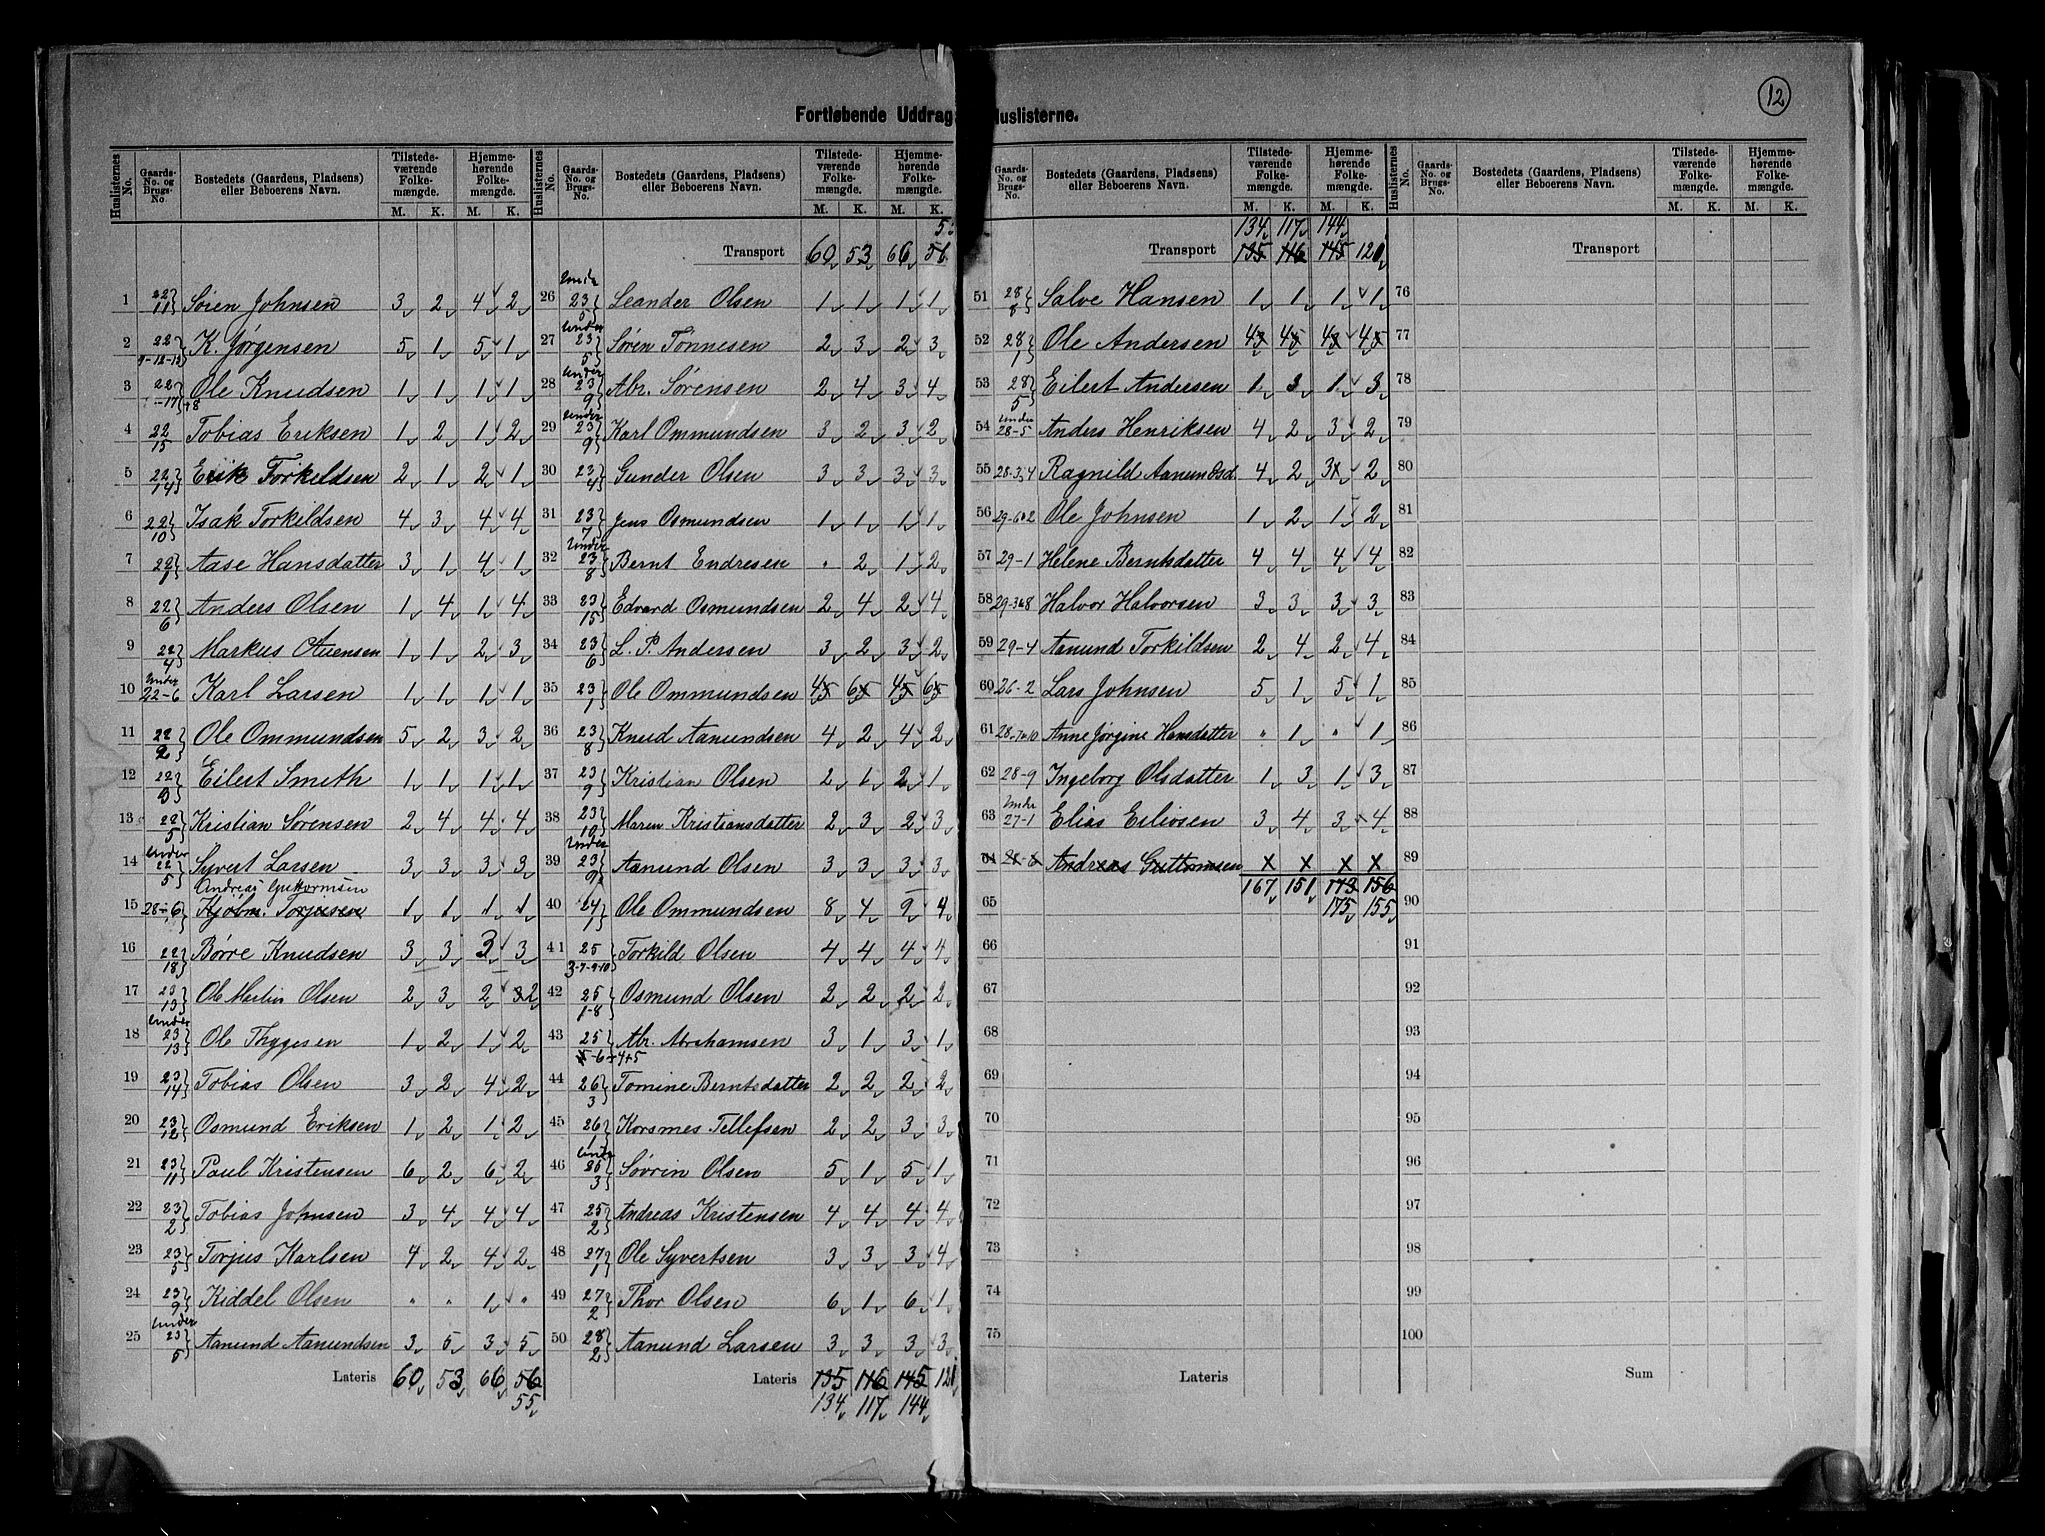 12
Fortløbende Uddrag Huslisterne.
Huslisternes No. Gaards-No. og Brugs-No. Bostedets (Gaardens, Pladsens) eller Beboerens Navn. Tilstedeværende Folkemængde. M. K. Hjemmehørende Folkemængde. M. K.
1 22 11 Søren Johnsen 3 2 4 2
2 22 9-12-13 K. Jørgensen 5 1 5 1
3 22 Ole Knudsen 1 1 1 1
4 22 15 Tobias Eriksen 1 2 1 2
5 22 14 Erik Torkildsen 2 1 2 1
6 22 10 Isak Torkildsen 4 3 4 4
7 22 1 Aase Hansdatter 3 1 4 1
8 22 6 Anders Olsen 1 4 1 4
9 22 4 Markus Auensen 1 1 2 3
10 Under 22-6 Karl Larsen 1 1 1 1
11 22 2 Ole Ommundsen 5 2 3 2
12 22 3 Eilert Smith 1 1 1 1
13 22 5 Kristian Sørensen 2 4 4 4
14 Under 22 5 Syvert Larsen 3 3 3 3
Andreas Guttormsen
15 28-6 Kjøbm. Torjusen 1 1 1 1
16 22 18 Børre Knudsen 3 3 3 3
17 23 13 Ole Martin Olsen 2 3 2 3 2
18 Under 23 13 Ole Thygesen 1 2 1 2
19 23 14 Tobias Olsen 3 2 4 2
20 23 12 Osmund Eriksen 1 2 1 2
21 23 11 Paul Kristensen 6 2 6 2
22 23 2 Tobias Johnsen 3 4 4 4
23 23 5 Torjus Karlsen 4 2 4 2
24 23 9 Kiddel Olsen " " 1 "
25 Under 23 5 Aanund Aanundsen 3 5 3 5
Lateris 60 53 66 56
55
Huslisternes No. Gaards-No. og Brugs-No. Bostedets (Gaardens, Pladsens) eller Beboerens Navn. Tilstedeværende Folkemængde. M. K. Hjemmehørende Folkemængde. M. K.
Transport 60 53 66 56
26 Under 23 5 Leander Olsen 1 1 1 1
27 Under 23 5 Søren Tønnesen 2 3 2 3
28 Under 23 9 Abr. Sørensen 2 4 3 4
29 Under 23 9 Karl Ommundsen 3 2 3 2
30 23 4 Gunder Olsen 3 3 3 3
31 23 7 Jens Osmundsen 1 1 1 1
32 Under 23 8 Bernt Endresen " 2 1 2
33 23 15 Edvard Osmundsen 2 4 2 4
34 23 6 L. P. Andersen 3 2 3 2
35 23 1 Ole Ommundsen 4 5 6 5 4 5 6 5
36 23 8 Knud Aanundsen 4 2 4 2
37 23 9 Kristian Olsen 2 1 2 1
38 23 10 Maren Kristiansdatter 2 3 2 3
39 Under 23 9 Aanund Olsen 3 3 3 3
40 24 1 Ole Ommundsen 8 4 9 4
41 25 3-7-9-10 Torkild Olsen 4 4 4 4
42 25 1-8 Osmund Olsen 2 2 2 2
43 25 5-6-4+5 Abr. Abrahamsen 3 1 3 1
44 26 3 Tomine Berntsdatter 2 2 2 2
45 26 1 Korsmes Tellefsen 2 2 3 3
46 Under 3 Søvrin Olsen 5 1 5 1
47 25 2 Andreas Kristensen 4 4 4 4
48 27 1 Ole Syvertsen 3 3 3 4
49 27 2 Thor Olsen 6 1 6 1
50 28 2 Aanund Larsen 3 3 3 3
Lateris 135 116 145 121
134 117 144
Gaards-No. og Brugs-No. Bostedets (Gaardens, Pladsens) eller Beboerens Navn. Tilstedeværende Folkemængde. M. K. Hjemmehørende Folkemængde. M. K.
134 117 144
Transport 135 116 145 120
51 28 8 Salve Hansen 1 1 1 1
52 28 1 Ole Andersen 4 3 4 5 4 3 4 5
53 28 5 Eilert Andersen 1 3 1 3
54 Under 28-5 Anders Henriksen 4 2 3 2
55 28-3,4 Ragnild Aanundsd. 4 2 3 2
56 29-6 2 Ole Johnsen 1 2 1 2
57 29-1 Helene Berntsdatter 4 4 4 4
58 29-3 8 Halvor Halvorsen 3 3 3 3
59 29-4 Aanund Torkildsen 2 4 2 4
60 26-2 Lars Johnsen 5 1 5 1
61 28-7 10 Anne Jørgine Hansdatter " 1 " 1
62 28-9 Ingeborg Olsdatter 1 3 1 3
63 Under 27-1 Elias Eilivsen 3 4 3 4
64 28-6 Andreas Guttormsen x x x x
65 167 151 173 156
175 155
66
67
68
69
70
71
72
73
74
75
Lateris
Huslisternes No. Gaards-No. og Brugs-No. Bostedets (Gaardens, Pladsens) eller Beboerens Navn. Tilstedeværende Folkemængde. M. K. Hjemmehørende Folkemængde. M. K.
Transport
76
77
78
79
80
81
82
83
84
85
86
87
88
89
90
91
92
93
94
95
96
97
98
99
100
Sum